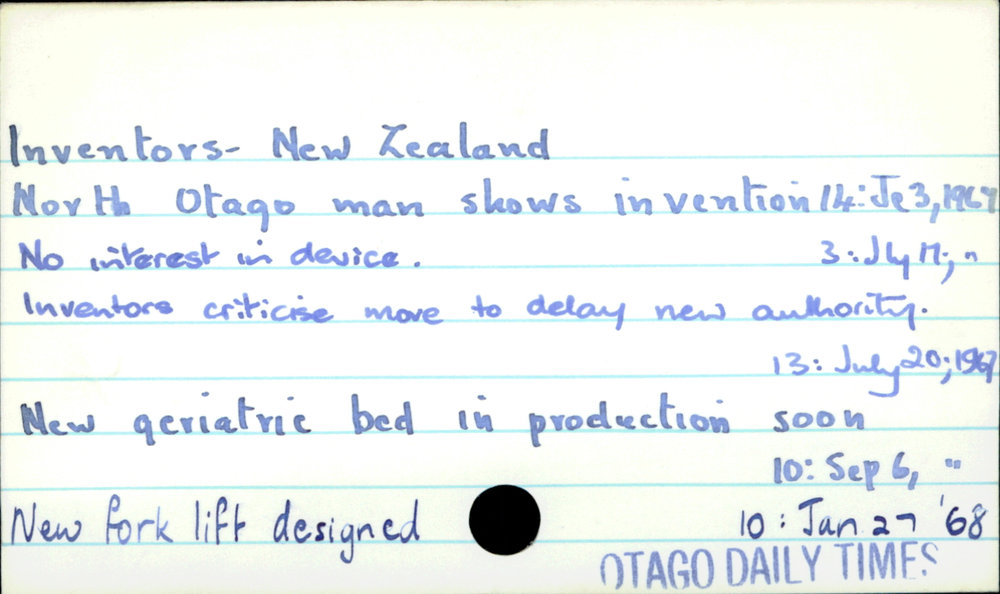 Inventors- New Zealand
North Otago man shows invention 14: Je 3, 1967
No interest in device. 3: Jly 17, "
Inventors criticise move to delay new authority.
13: July 20; 1967
New geriatric bed in production soon
10: Sep 6, "
New fork lift designed 10: Jan 27 '68
OTAGO DAILY TIMES